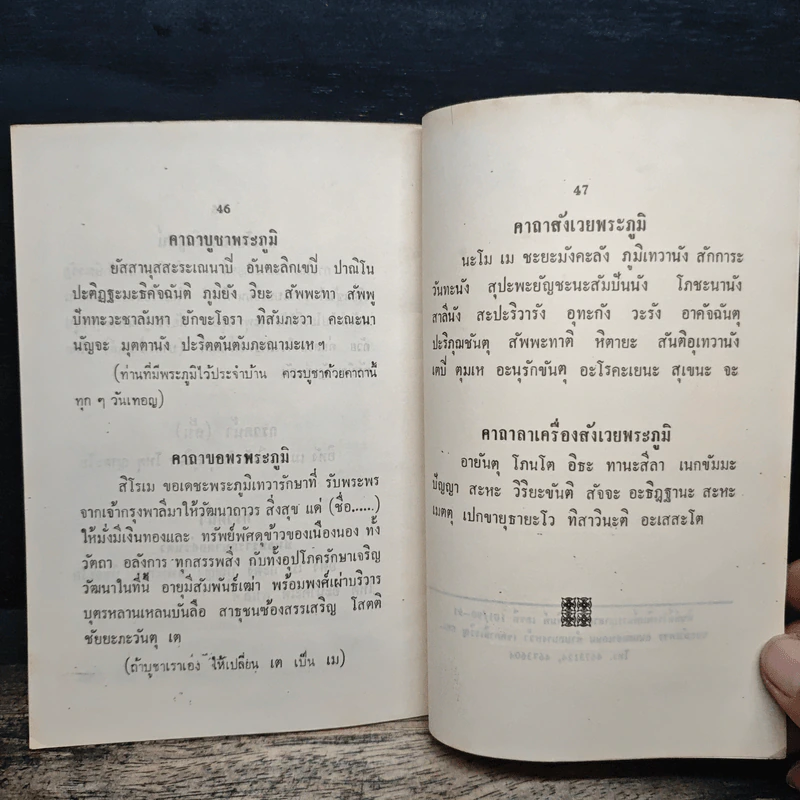 46
คาถาบูชาพระภูมิ
ยัสสานุสสะระเณนาปี อันตะลิกเขปี ปาณิโน
ปะติฏฐะมะธิคัจฉันติ ภูมิยัง วิยะ สัพพะทา สัพพู
ปัททะวะชาลัมหา ยักขะโจรา ทิสัมภะวา คะณะนา
นัญจะ มุตตานัง ปะริตตันตัมภะณามะเห ฯ
(ท่านที่มีพระภูมิไว้ประจำบ้าน ควรบูชาด้วยคาถานี้
ทุก ๆ วันเทอญ)
คาถาขอพรพระภูมิ
สิโรเม ขอเดชะพระภูมิเทวารักษาที่ รับพระพร
จากเจ้ากรุงพาลีมาให้วัฒนาถาวร สิ่งสุข แด่ (ชื่อ......)
ให้มั่งมีเงินทองและ ทรัพย์พัศดุข้าวของเนืองนอง ทั้ง
วัตถา อลังการ ทุกสรรพสิ่ง กับทั้งอุปโภครักษาเจริญ
วัฒนาในที่นี้ อายุมีสัมพันธ์เฒ่า พร้อมพงศ์เผ่าบริวาร
บุตรหลานเหลนบันลือ สาธุชนซ้องสรรเสริญ โสตติ
ชัยยะภะวันตุ เต
(ถ้าบูชาเราเอง ให้เปลี่ยน เต เป็น เม)
47
คาถาสังเวยพระภูมิ
นะโม เม ชะยะมังคะลัง ภูมิเทวานัง สักการะ
วันทะนัง สุปะพะยัญชะนะสัมปันนัง โภชะนานัง
สาลีนัง สะปะริวารัง อุทะกัง วะรัง อาคัจฉันตุ
ปะริภุญชันตุ สัพพะทาติ หิตายะ สันติอุเทวานัง
เตปี ตุมเห อะนุรักขันตุ อะโรคะเยนะ สุเขนะ จะ
คาถาลาเครื่องสังเวยพระภูมิ
อายันตุ โภนโต อิธะ ทานะสีลา เนกขัมมะ
ปัญญา สะหะ วิริยะขันติ สัจจะ อะธิฏฐานะ สะหะ
เมตตุ เปกขายุธายะโว ทิสาวินะติ อะเสสะโต